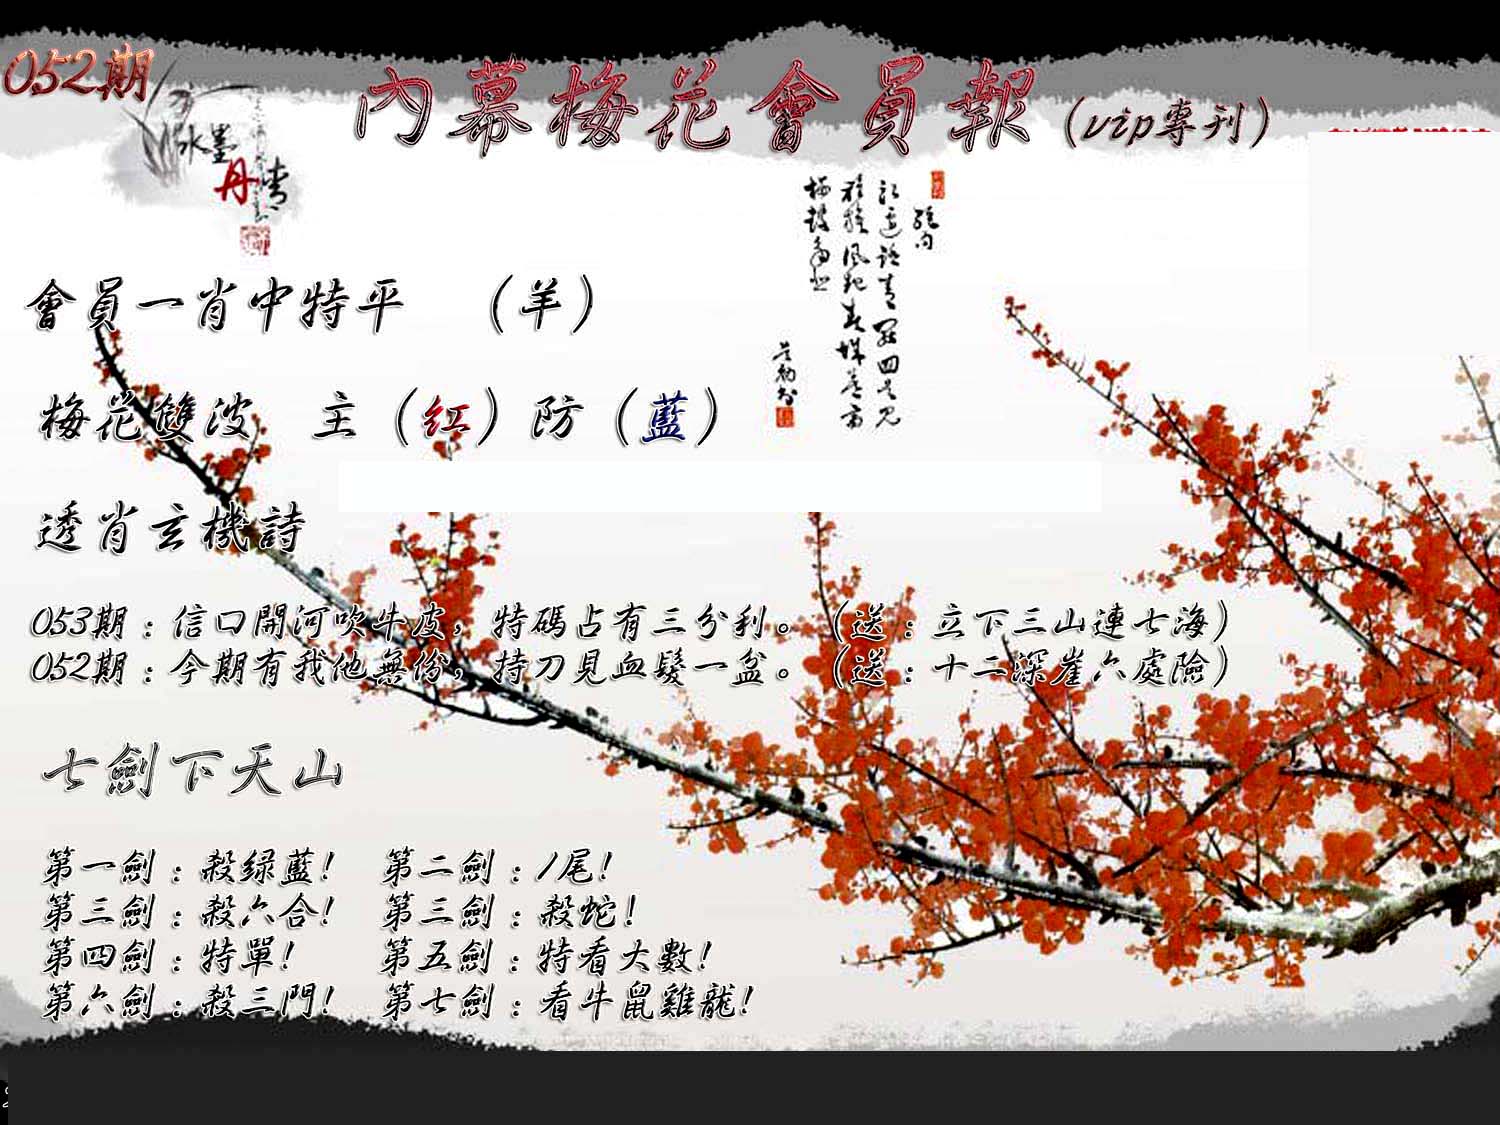 052期
內幕梅花會員報(vip專刊)
水墨
丹青
絕句
會員一肖中特平 (羊)
梅花雙波 主(红)防(藍)
透肖玄機詩
053期:信口開河吹牛皮,特碼占有三分利。(送:立下三山連七海)
052期:今期有我他無份,持刀見血髮一盆。(送:十二深崖六處險)
七劍下天山
第一劍:殺绿藍! 第二劍:1尾!
第三劍:殺六合! 第三劍:殺蛇!
第四劍:特單! 第五劍:特看大數!
第六劍:殺三門! 第七劍:看牛鼠雞龍!